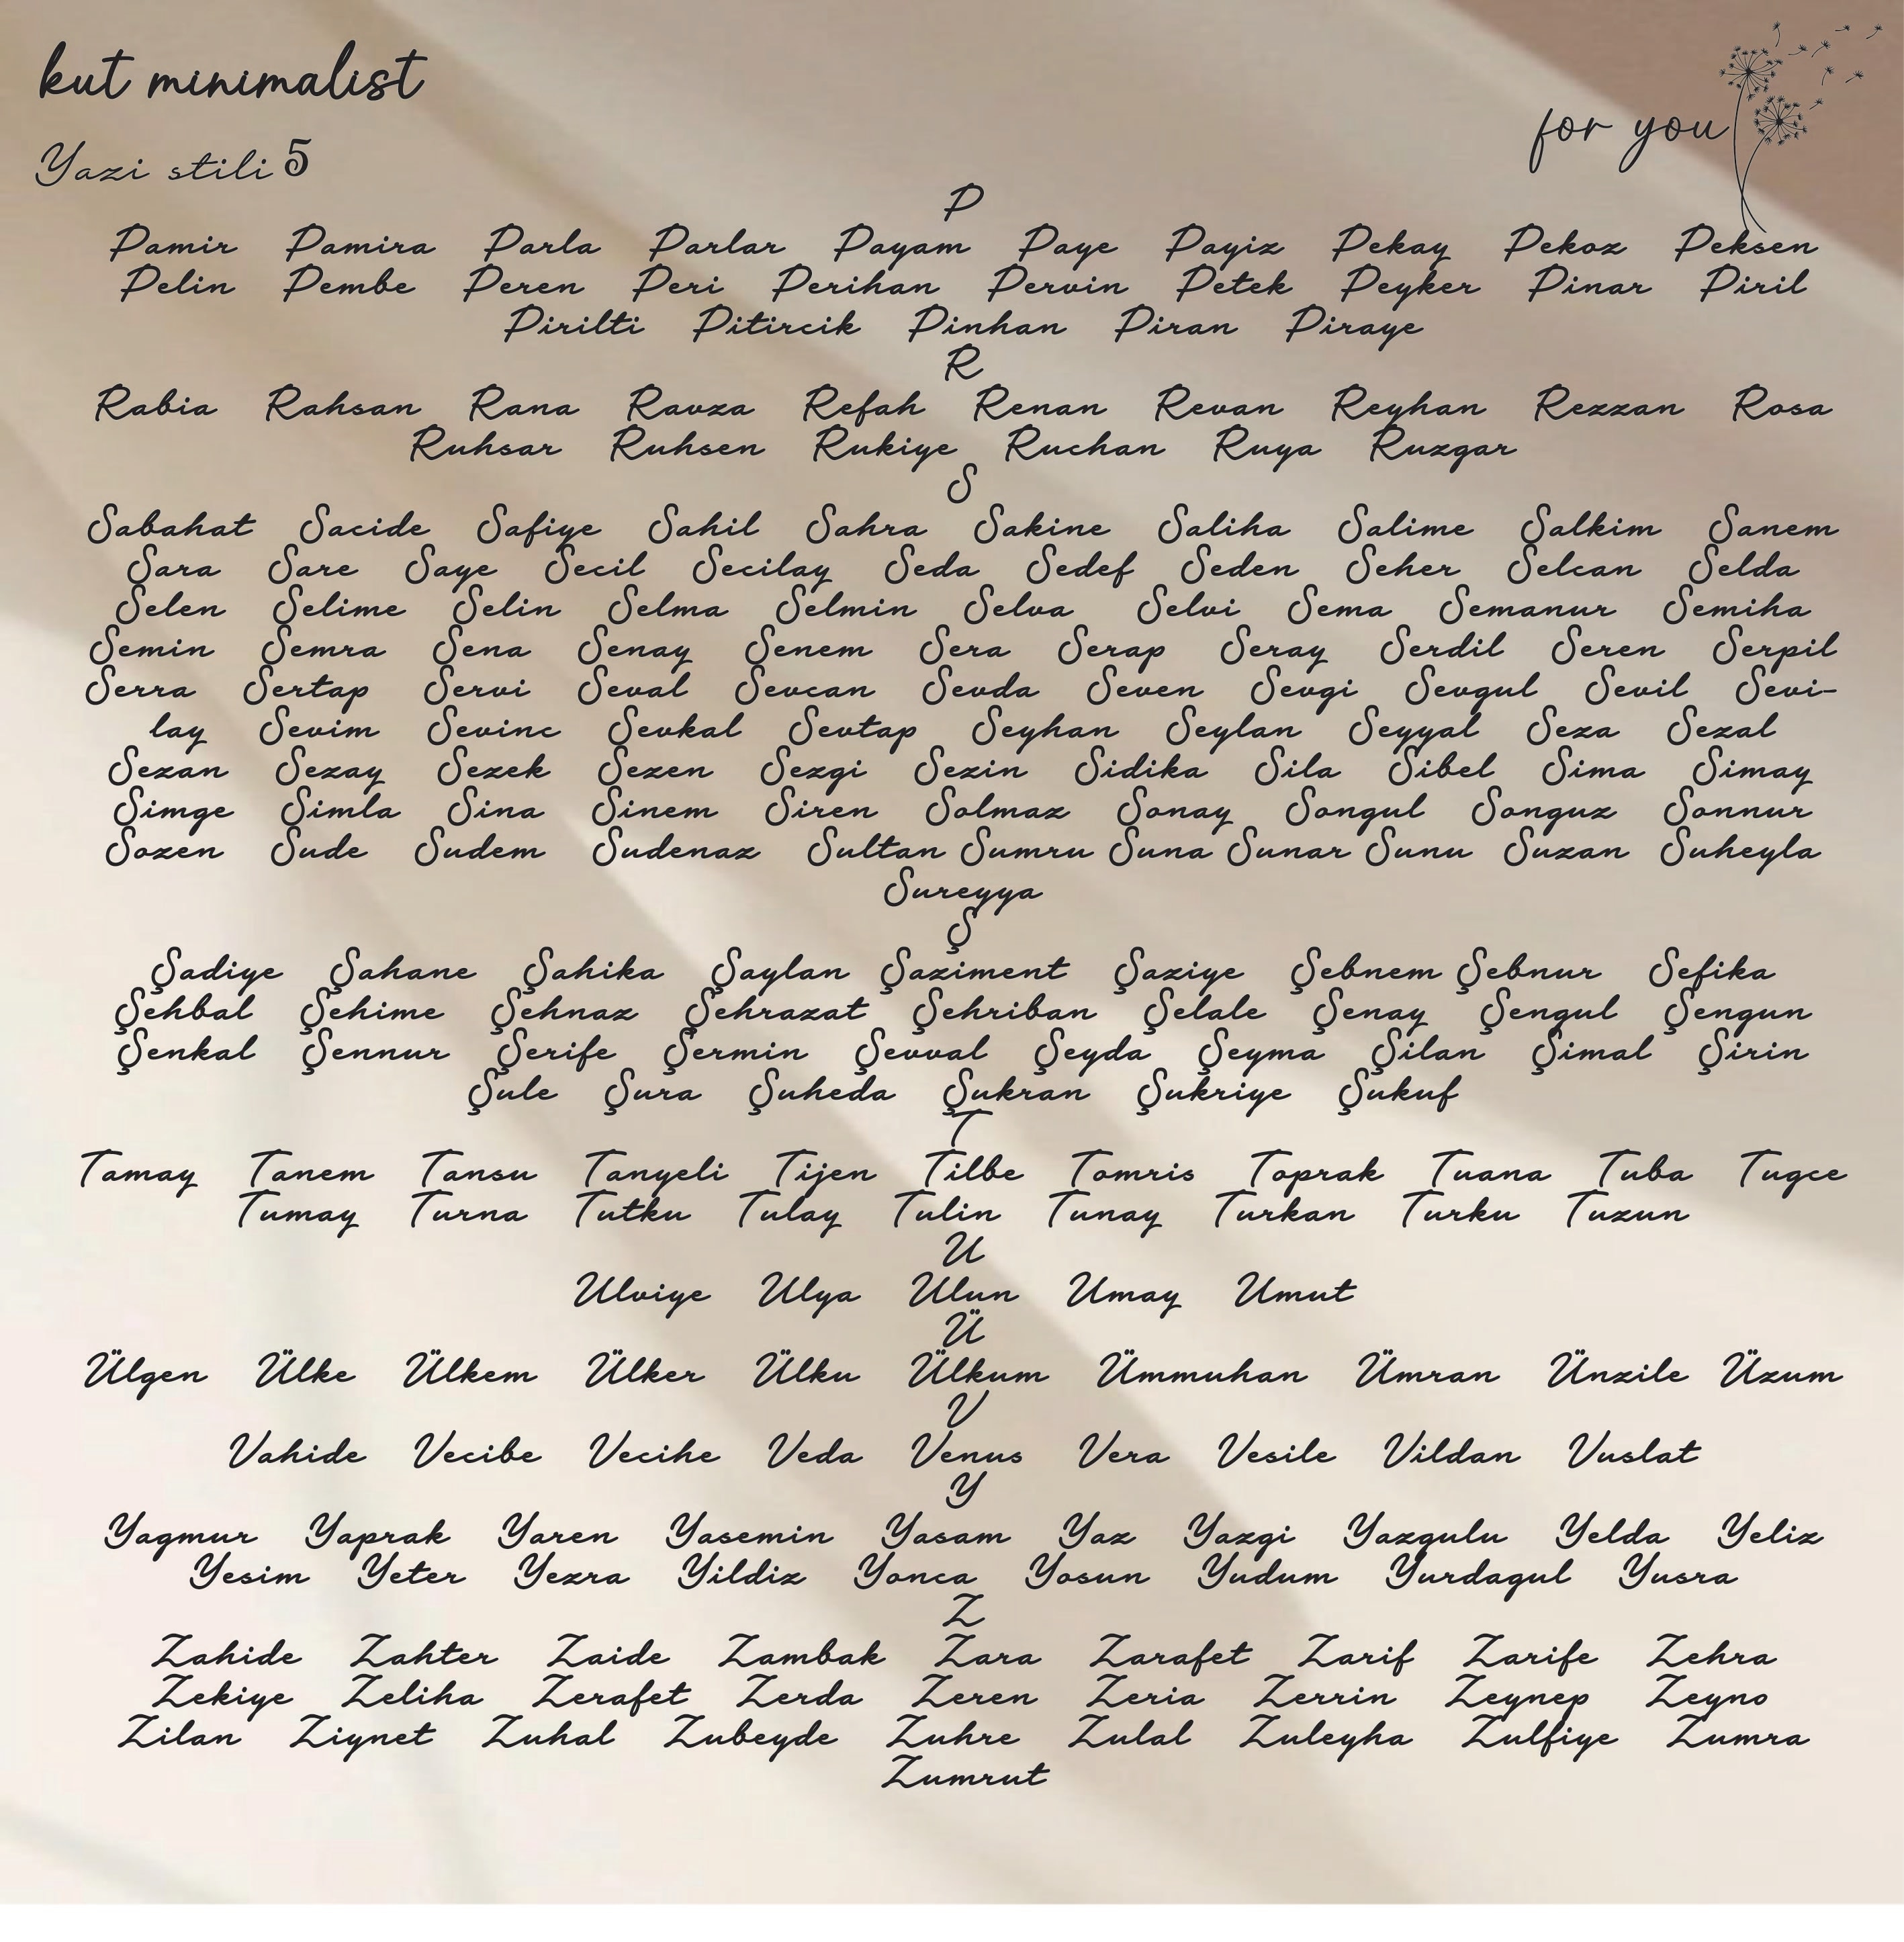 kut minimalist
for you
Yazi stili 5
P
Pamir Pamira Parla Parlar Payam Paye Payiz Pekay Pekoz Peksen
Pelin Pembe Peren Peri Perihan Pervin Petek Peyker Pinar Piril
Pirilti Pitircik Pinhan Piran Piraye
R
Rabia Rahsan Rana Ravza Refah Renan Revan Reyhan Rezzan Rosa
Ruhsar Ruhsen Rukiye Ruchan Ruya Ruzgar
S
Sabahat Sacide Safiye Sahil Sahra Sakine Saliha Salime Salkim Sanem
Sara Sare Saye Secil Secilay Seda Sedef Seden Seher Selcan Selda
Selen Selime Selin Selma Selmin Selva Selvi Sema Semanur Semiha
Semin Semra Sena Senay Senem Sera Serap Seray Serdil Seren Serpil
Serra Sertap Servi Seval Sevcan Sevda Seven Sevgi Sevgul Sevil Sevi-
lay Sevim Sevinc Sevkal Sevtap Seyhan Seylan Seyyal Seza Sezal
Sezan Sezay Sezek Sezen Sezgi Sezin Sidika Sila Sibel Sima Simay
Simge Simla Sina Sinem Siren Solmaz Sonay Songul Songuz Sonnur
Sozen Sude Sudem Sudenaz Sultan Sumru Suna Sunar Sunu Suzan Suheyla
Sureyya
Ş
Şadiye Şahane Şahika Şaylan Şaziment Şaziye Şebnem Şebnur Şefika
Şehbal Şehime Şehnaz Şehrazat Şehriban Şelale Şenay Şengul Şengun
Şenkal Şennur Şerife Şermin Şevval Şeyda Şeyma Şilan Şimal Şirin
Şule Şura Şuheda Şukran Şukriye Şukuf
T
Tamay Tanem Tansu Tanyeli Tijen Tilbe Tomris Toprak Tuana Tuba Tugce
Tumay Turna Tutku Tulay Tulin Tunay Turkan Turku Tuzun
U
Ulviye Ulya Ulun Umay Umut
Ü
Ülgen Ülke Ülkem Ülker Ülku Ülkum Ümmuhan Ümran Ünzile Üzum
V
Vahide Vecibe Vecihe Veda Venus Vera Vesile Vildan Vuslat
Y
Yagmur Yaprak Yaren Yasemin Yasam Yaz Yazgi Yazgulu Yelda Yeliz
Yesim Yeter Yezra Yildiz Yonca Yosun Yudum Yurdagul Yusra
Z
Zahide Zahter Zaide Zambak Zara Zarafet Zarif Zarife Zehra
Zekiye Zeliha Zerafet Zerda Zeren Zeria Zerrin Zeynep Zeyno
Zilan Ziynet Zuhal Zubeyde Zuhre Zulal Zuleyha Zulfiye Zumra
Zumrut